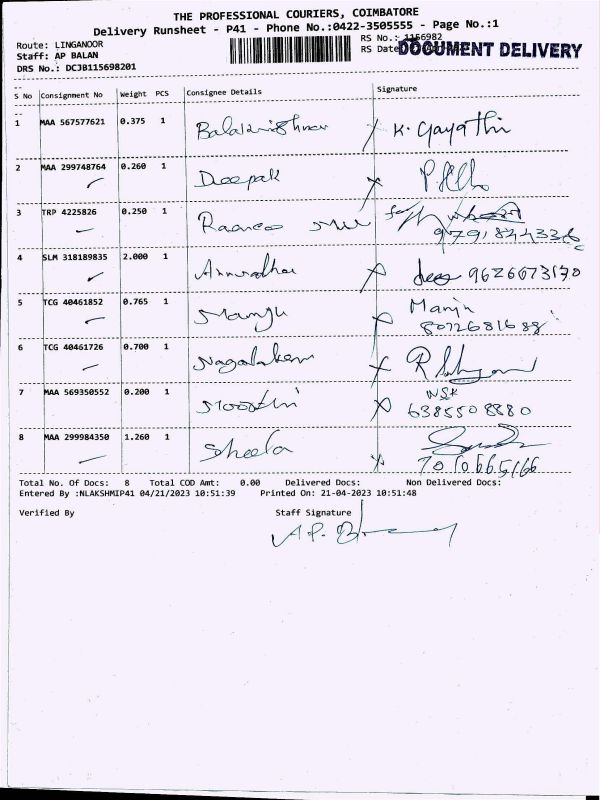 THE PROFESSIONAL COURIERS, COIMBATORE
Delivery Runsheet - P41 - Phone No.:0422-3505555 - Page No.:1
Route: LINGANOOR
RS No.: 1156982
Staff: AP BALAN
RS Date
DOCUMENT DELIVERY
DRS No.: DCJB115698201
S No Consignment No Weight PCS Consignee Details Signature
1 MAA 567577621 0.375 1 Balakrishnan K. Gayathi
2 MAA 299748764 0.260 1 Deepak
3 TRP 4225826 0.250 1
9791844336
4 SLM 318189835 2.000 1 Annuradha 9626673170
5 TCG 40461852 0.765 1 Manju Manju
8072681688
6 TCG 40461726 0.700 1
7 MAA 569350552 0.200 1 Moorthi NSK
6385508880
8 MAA 299984350 1.260 1 Sheela
7010665166
Total No. Of Docs: 8 Total COD Amt: 0.00 Delivered Docs: Non Delivered Docs:
Entered By :NLAKSHMIP41 04/21/2023 10:51:39 Printed On: 21-04-2023 10:51:48
Verified By Staff Signature
A.P.